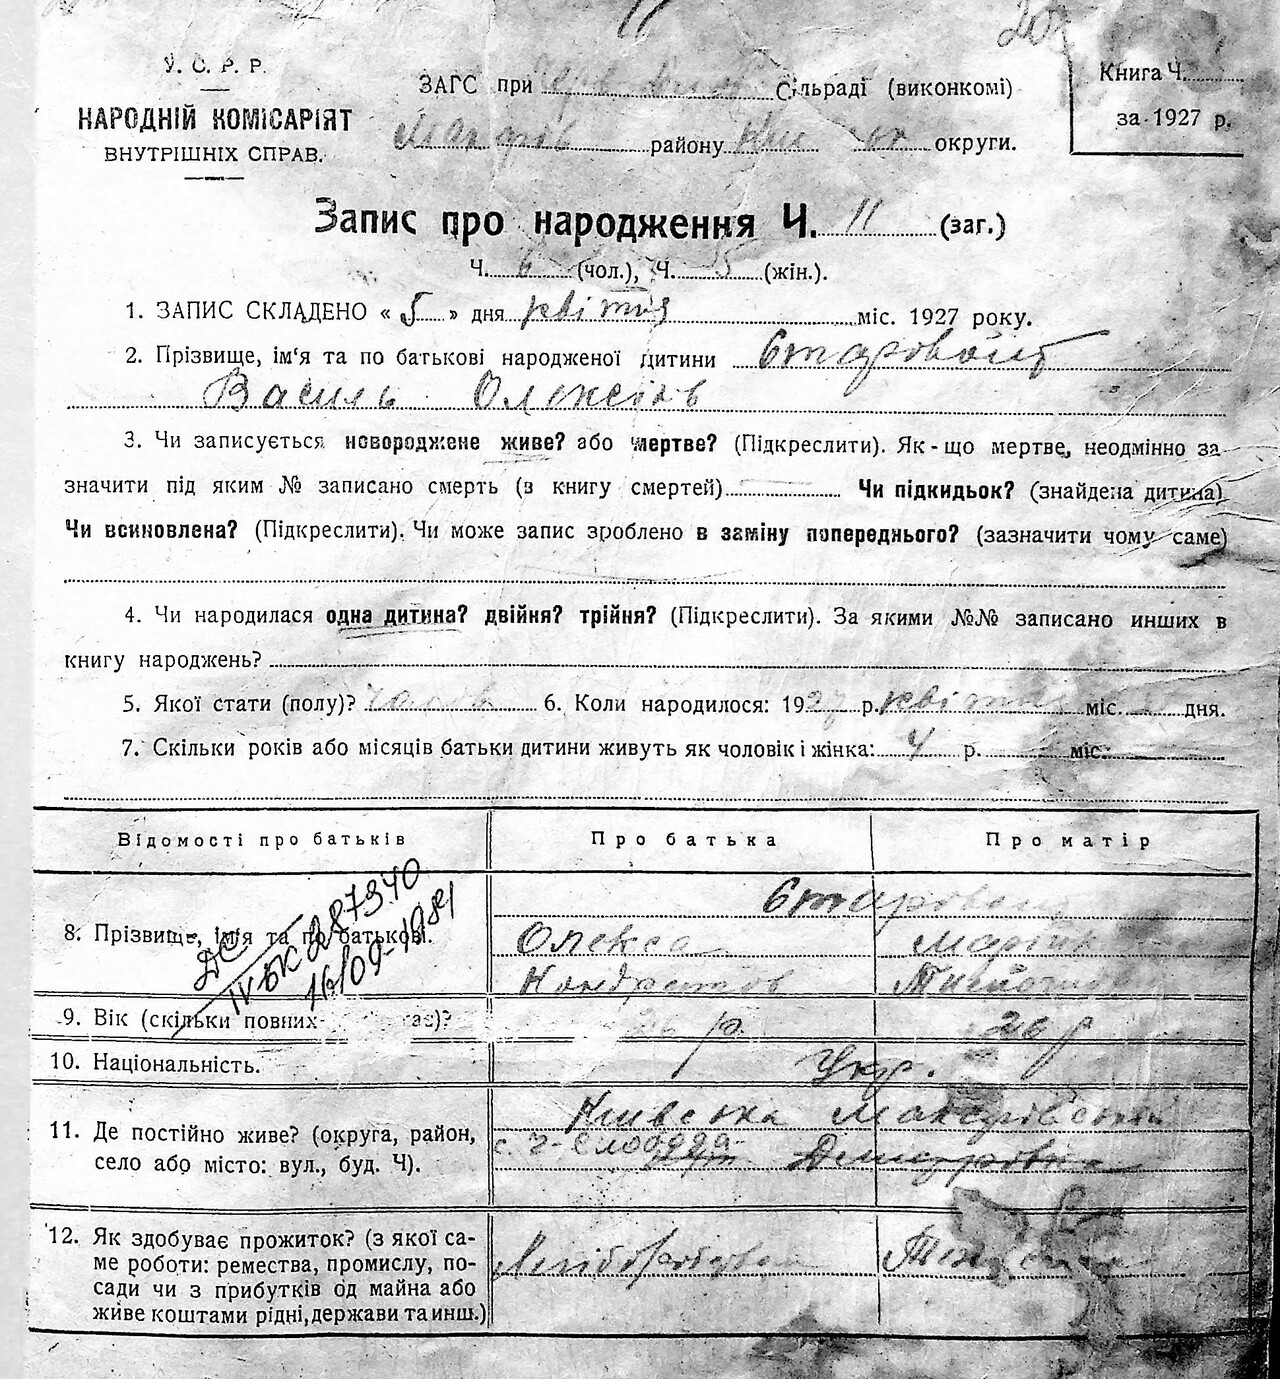 У. С. Р. Р.
НАРОДНІЙ КОМІСАРІЯТ
ВНУТРІШНІХ СПРАВ.
ЗАГС при Сільраді (виконкомі)
Макарів району округи.
Книга Ч.
за 1927 р.
Запис про народження Ч. 11 (заг.)
Ч. 6 (чол.), Ч. 5 (жін.).
1. ЗАПИС СКЛАДЕНО « 5 » дня квітня міс. 1927 року.
2. Прізвище, ім'я та по батькові народженої дитини Старовойт
Василь Олексіїв
3. Чи записується новороджене живе? або мертве? (Підкреслити). Як-що мертве, неодмінно за-
значити під яким № записано смерть (в книгу смертей) Чи підкидьок? (знайдена дитина)
Чи всиновлена? (Підкреслити). Чи може запис зроблено в заміну попереднього? (зазначити чому саме)
4. Чи народилася одна дитина? двійня? трійня? (Підкреслити). За якими №№ записано инших в
книгу народжень?
5. Якої стати (полу)? чолов 6. Коли народилося: 1927 р. квітня міс. дня.
7. Скільки років або місяців батьки дитини живуть як чоловік і жінка: 4 р. міс.
Відомості про батьків Про батька Про матір
8. Прізвище, ім'я та по батькові. Старовойт
Олекса
Кондратов
ІУ БК 287340
16/09-1981
9. Вік (скільки повних 26 р. 26 р
10. Національність. Укр.
11. Де постійно живе? (округа, район,
село або місто: вул., буд. Ч).
Київська Макарівський
с. Ч-Слобода
12. Як здобуває прожиток? (з якої са-
ме роботи: ремества, промислу, по-
сади чи з прибутків од майна або
живе коштами рідні, держави та инш.)